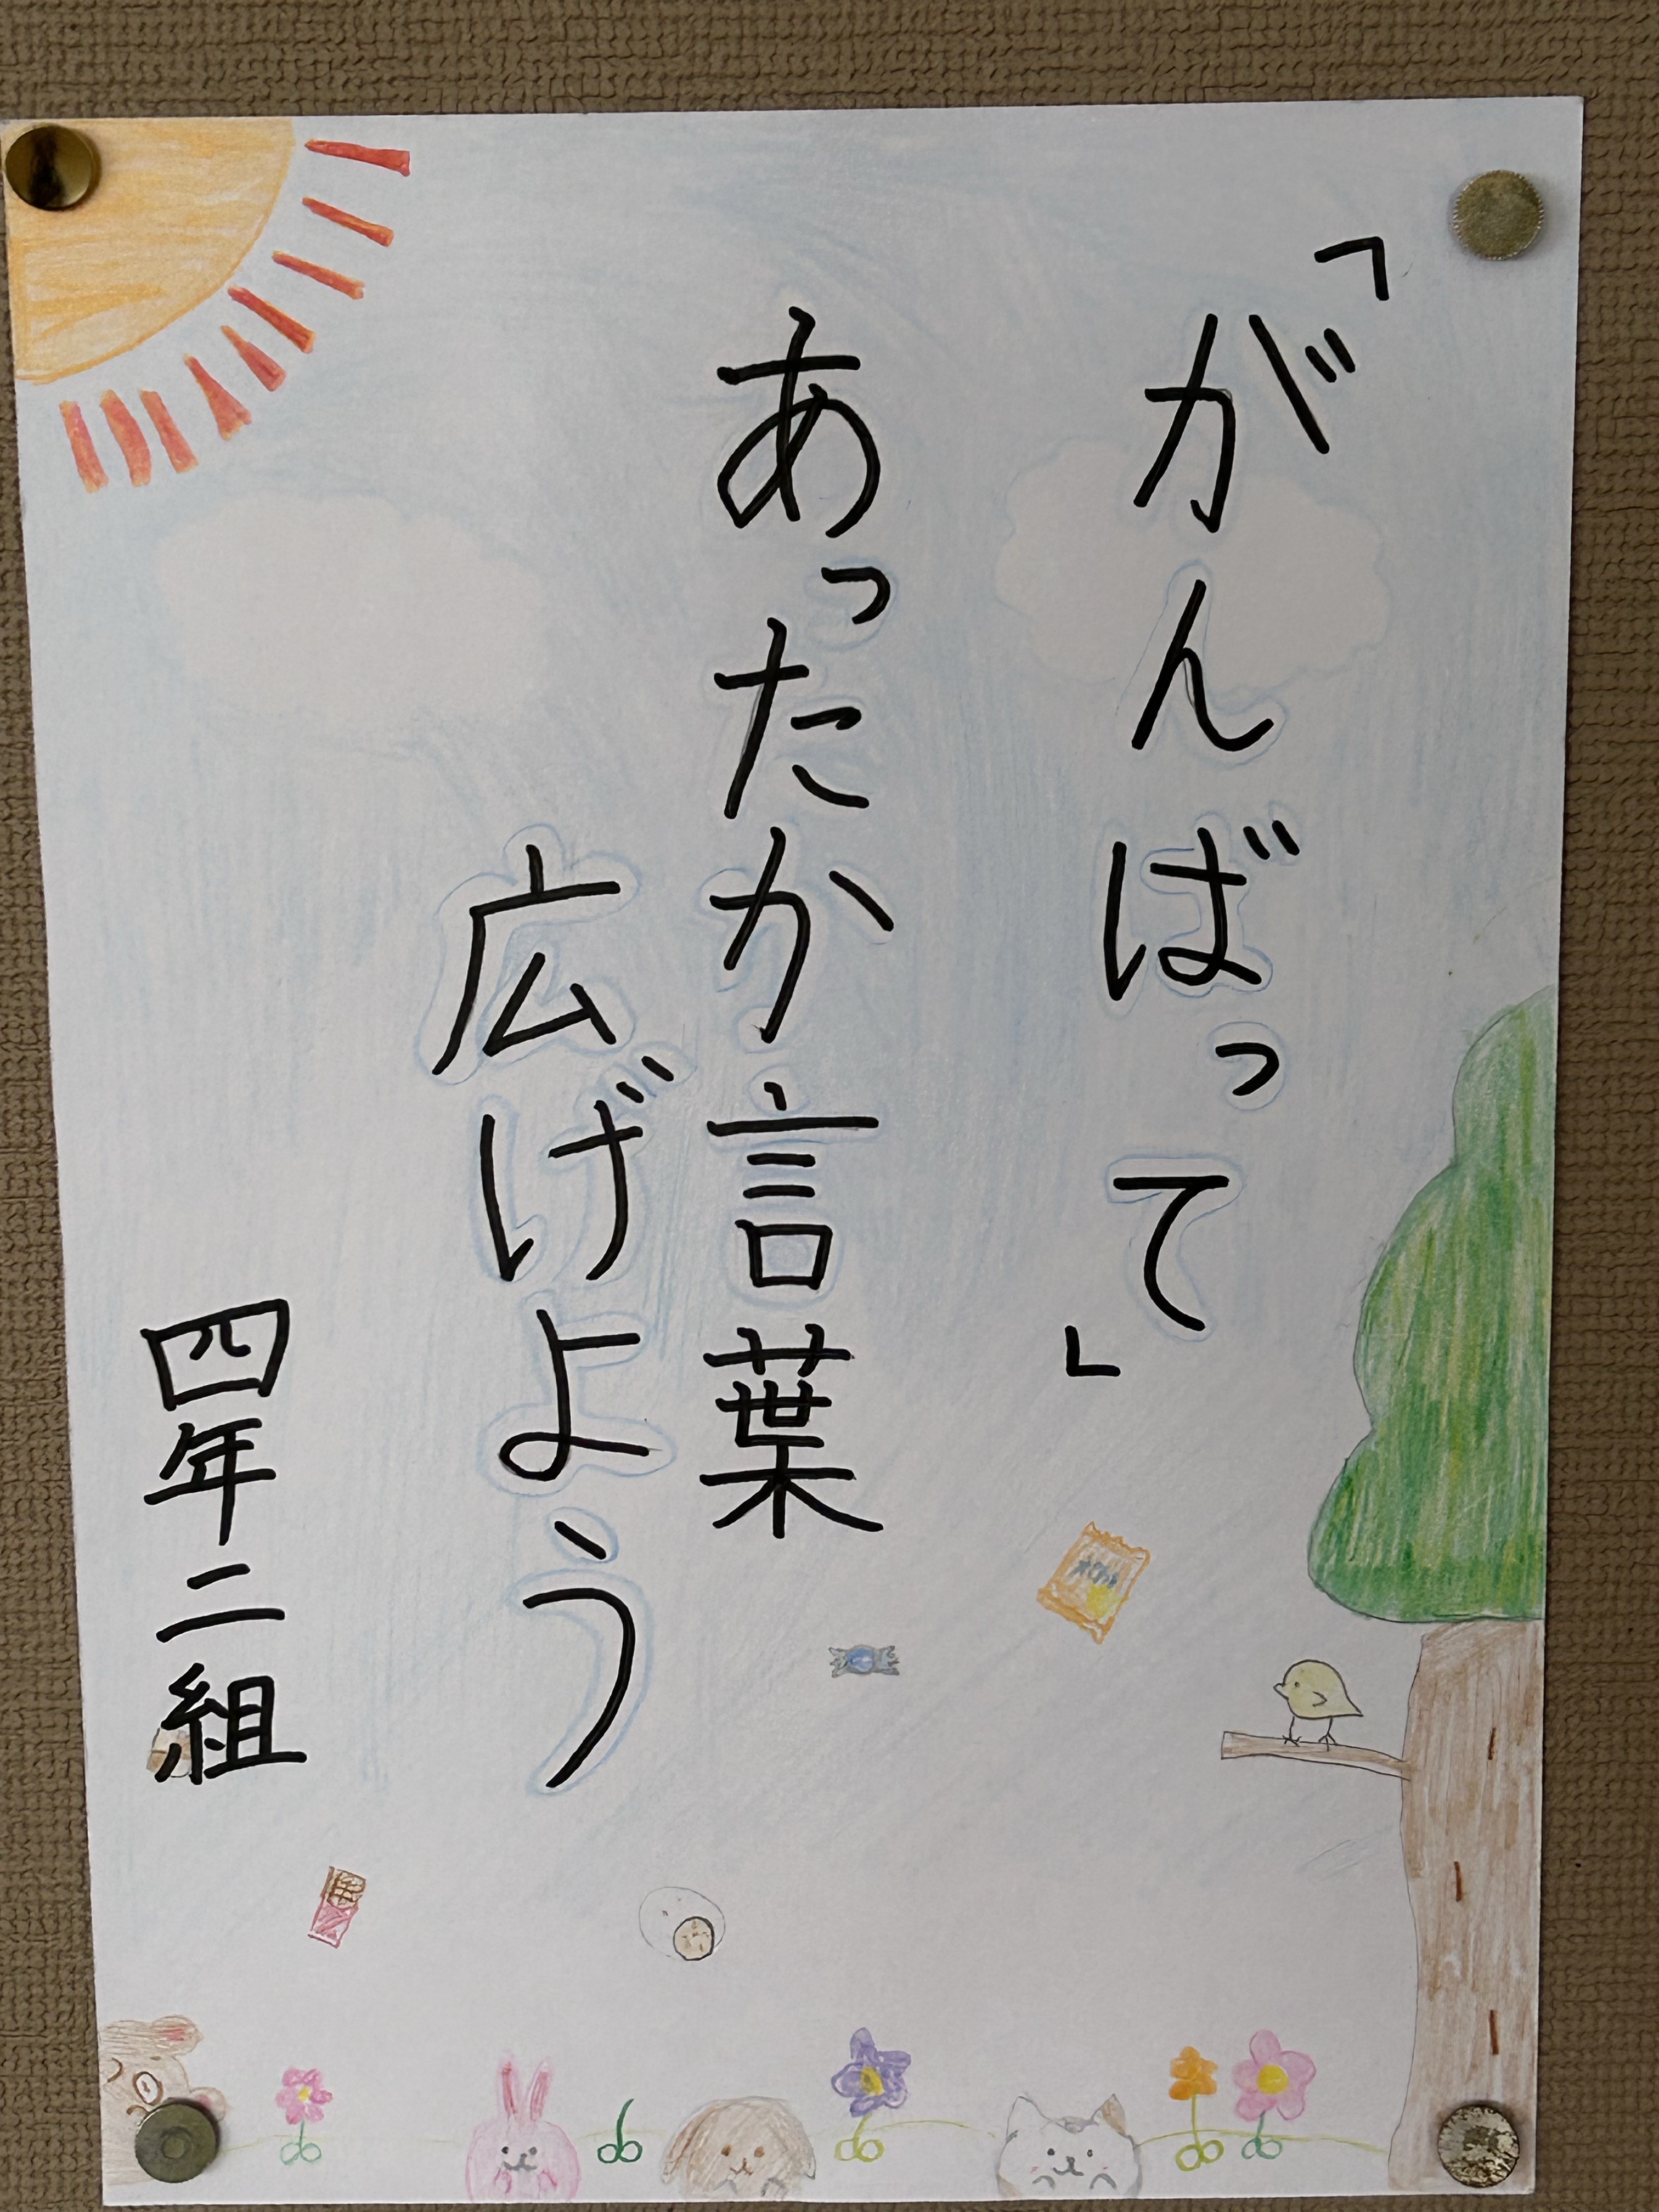 「がんばって」
あったか言葉
広げよう
四年二組